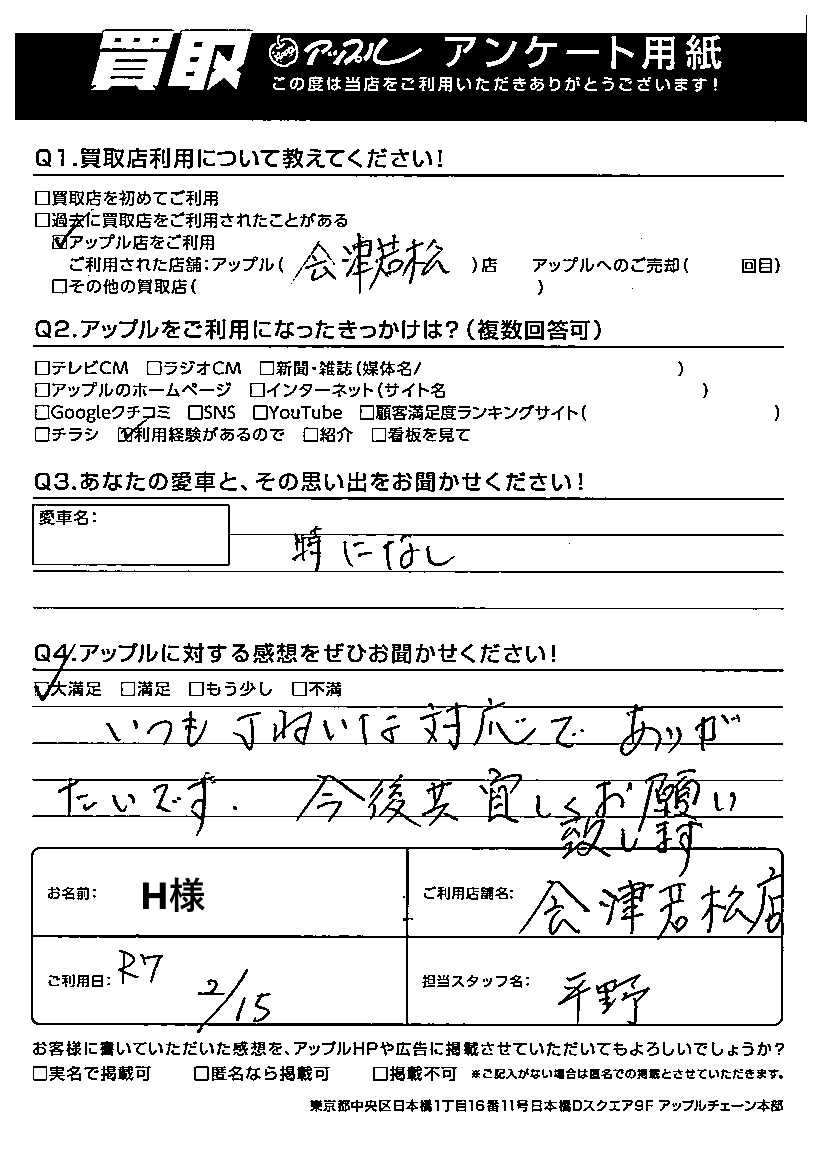 買取 アップル アンケート用紙
この度は当店をご利用いただきありがとうございます!
Q1.買取店利用について教えてください!
□買取店を初めてご利用
□過去に買取店をご利用されたことがある
☑アップル店をご利用
ご利用された店舗:アップル( 会津若松 )店 アップルへのご売却( 回目)
□その他の買取店( )
Q2.アップルをご利用になったきっかけは?(複数回答可)
□テレビCM □ラジオCM □新聞・雑誌(媒体名/ )
□アップルのホームページ □インターネット(サイト名 )
□Googleクチコミ □SNS □YouTube □顧客満足度ランキングサイト( )
□チラシ ☑利用経験があるので □紹介 □看板を見て
Q3.あなたの愛車と、その思い出をお聞かせください!
愛車名:
特になし
Q4.アップルに対する感想をぜひお聞かせください!
☑大満足 □満足 □もう少し □不満
いつも丁ねいな対応で ありが
たいです. 今後共宜しくお願い
致します
お名前: H様 ご利用店舗名: 会津若松店
ご利用日: R7 2/15 担当スタッフ名: 平野
お客様に書いていただいた感想を、アップルHPや広告に掲載させていただいてもよろしいでしょうか?
□実名で掲載可 □匿名なら掲載可 □掲載不可 ※ご記入がない場合は匿名での掲載とさせていただきます。
東京都中央区日本橋1丁目16番11号日本橋Dスクエア9F アップルチェーン本部